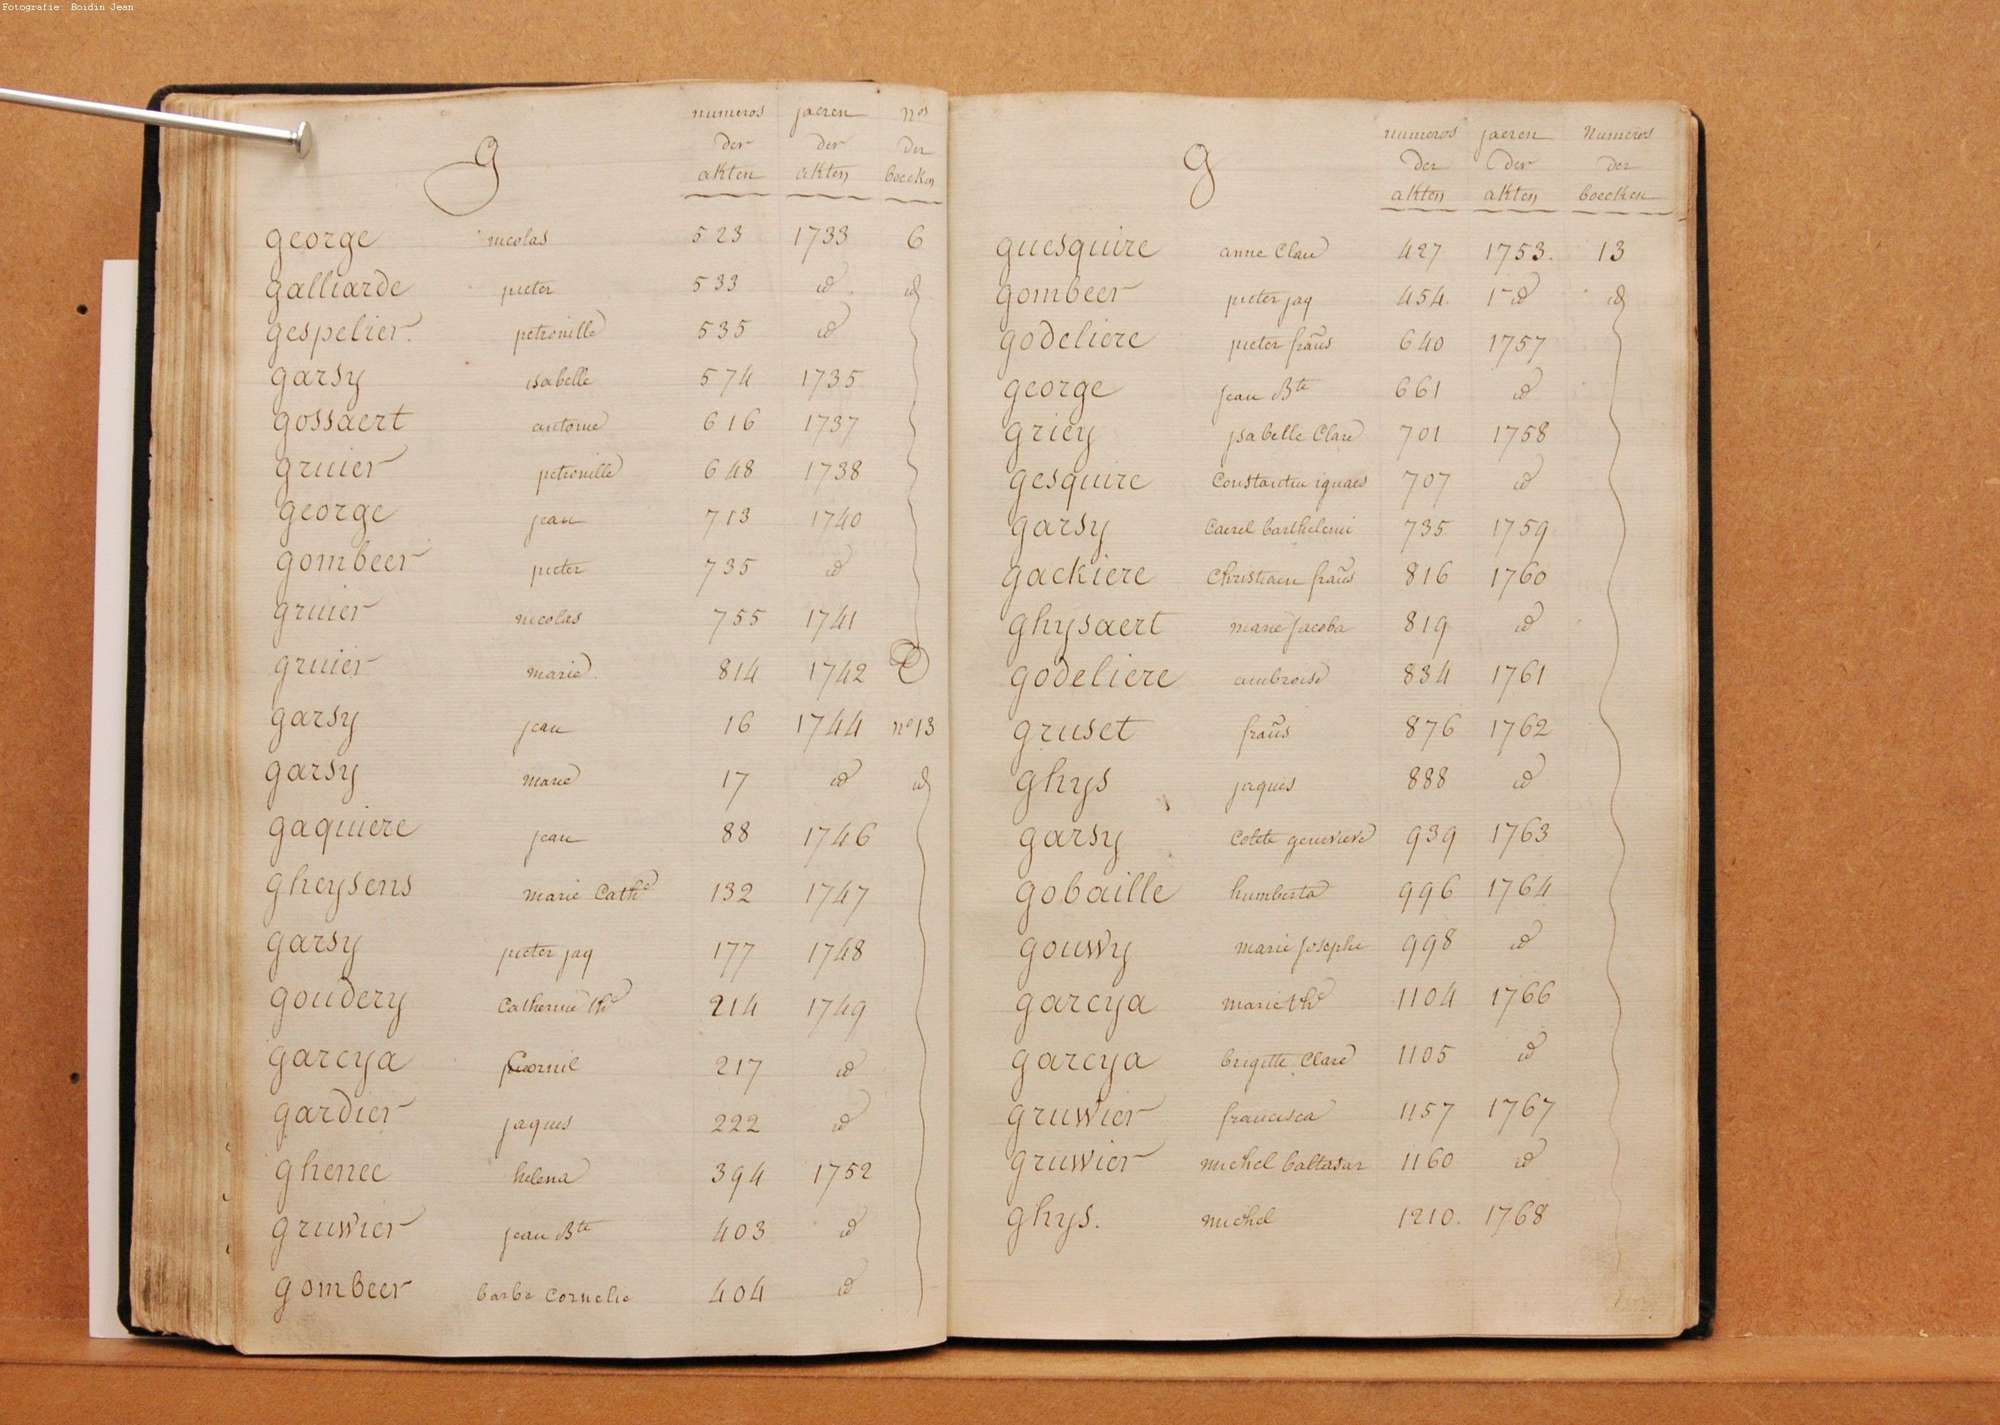 Fotografie: Boidin Jean
g
numeros jaeren nos
der der der
akten akten boecken
george nicolas 523 1733 6
galliarde pieter 533 id id
gespelier. petronille 535 id
garsy isabelle 574 1735
gossaert antoine 616 1737
gruier petronille 648 1738
george jean 713 1740
gombeer pieter 735 id
gruier nicolas 755 1741
gruier marie 814 1742
garsy jean 16 1744 no 13
garsy marie 17 id id
gaquiere jean 88 1746
gheysens marie Cathe 132 1747
garsy pieter jaq 177 1748
goudery Catherine the 214 1749
garcya 217 id
gardier jaques 222 id
ghenee helena 394 1752
gruwier jean Bte 403 id
gombeer barbe Cornelie 404 id
g
numeros jaeren Numeros
der der der
akten akten boecken
guesquire anne Clare 427 1753. 13
gombeer pieter jaq 454. id id
godeliere pieter frans 640 1757
george jean Bte 661 id
griey ysabelle Clare 701 1758
gesquire Constantin ignaes 707 id
garsy Caerel barthelemi 735 1759
gackiere Christiaen frans 816 1760
ghysaert marie Jacoba 819 id
godeliere ambroise 834 1761
gruset frans 876 1762
ghys jaques 888 id
garsy Colete genevieve 939 1763
gobaille humberta 996 1764
gouwy marie Josephe 998 id
garcya marie the 1104 1766
garcya brigitte Clare 1105 id
gruwier francisca 1157 1767
gruwier michel baltasar 1160 id
ghys. michel 1210. 1768